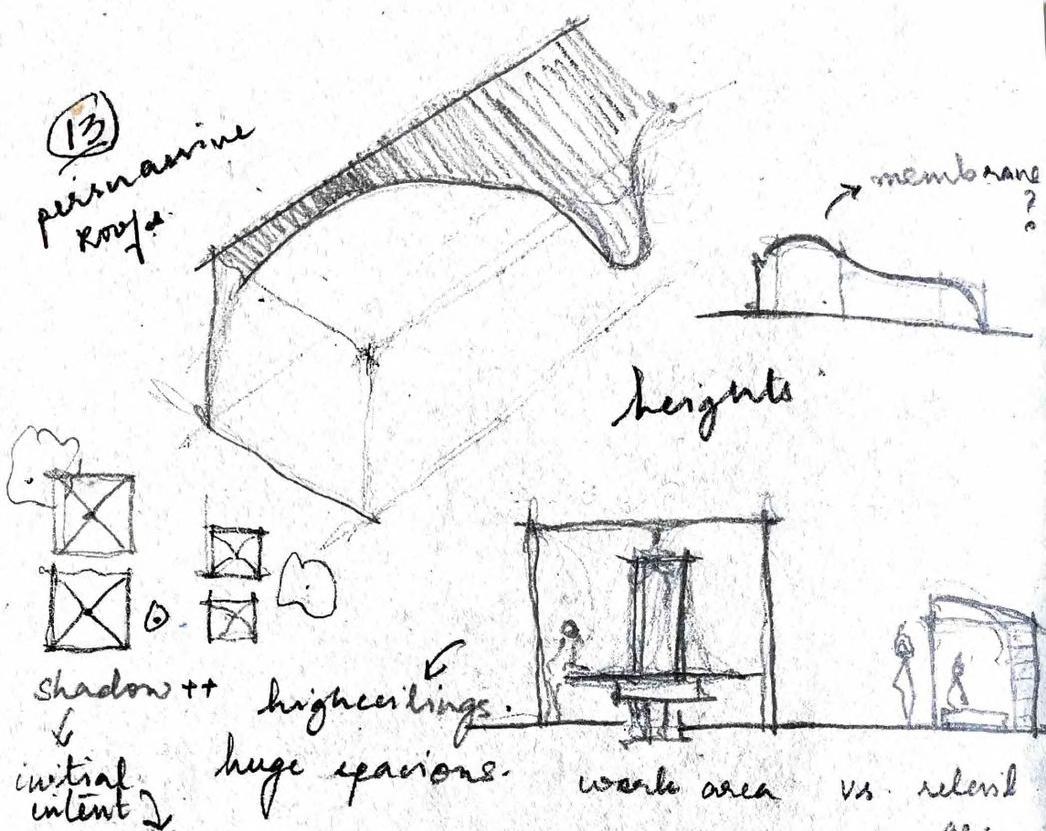 13
persuasive
roofs.
membrane
?
heights
shadow ++
initial
intent
high ceilings.
huge spacious.
work area vs. retail